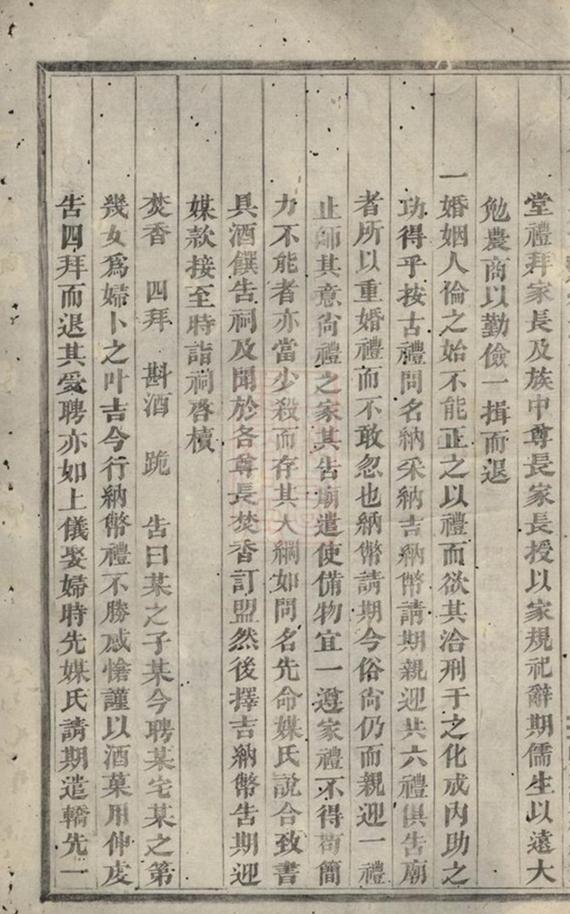 堂禮拜家長及族中尊長家長授以家規祀辭期儒生以遠大
勉農商以勤儉一揖而退
一婚姻人倫之始不能正之以禮而欲其洽刑于之化成內助之
功得乎按古禮問名納采納吉納幣請期親迎共六禮俱告廟
者所以重婚禮而不敢忽也納幣請期今俗尙仍而親迎一禮
止師其意尙禮之家其告廟遣使備物宜一遵家禮不得苟簡
力不能者亦當少殺而存其大綱如問名先命媒氏說合致書
具酒饌告祠及聞於各尊長焚香訂盟然後擇吉納幣告期迎
媒款接至時詣祠啓櫝
焚香 四拜 斟酒 跪 告曰某之子某今聘某宅某之第
幾女爲婦卜之叶吉今行納幣禮不勝感愴謹以酒菓用伸虔
告四拜而退其受聘亦如上儀娶婦時先媒氏請期遣轎先一